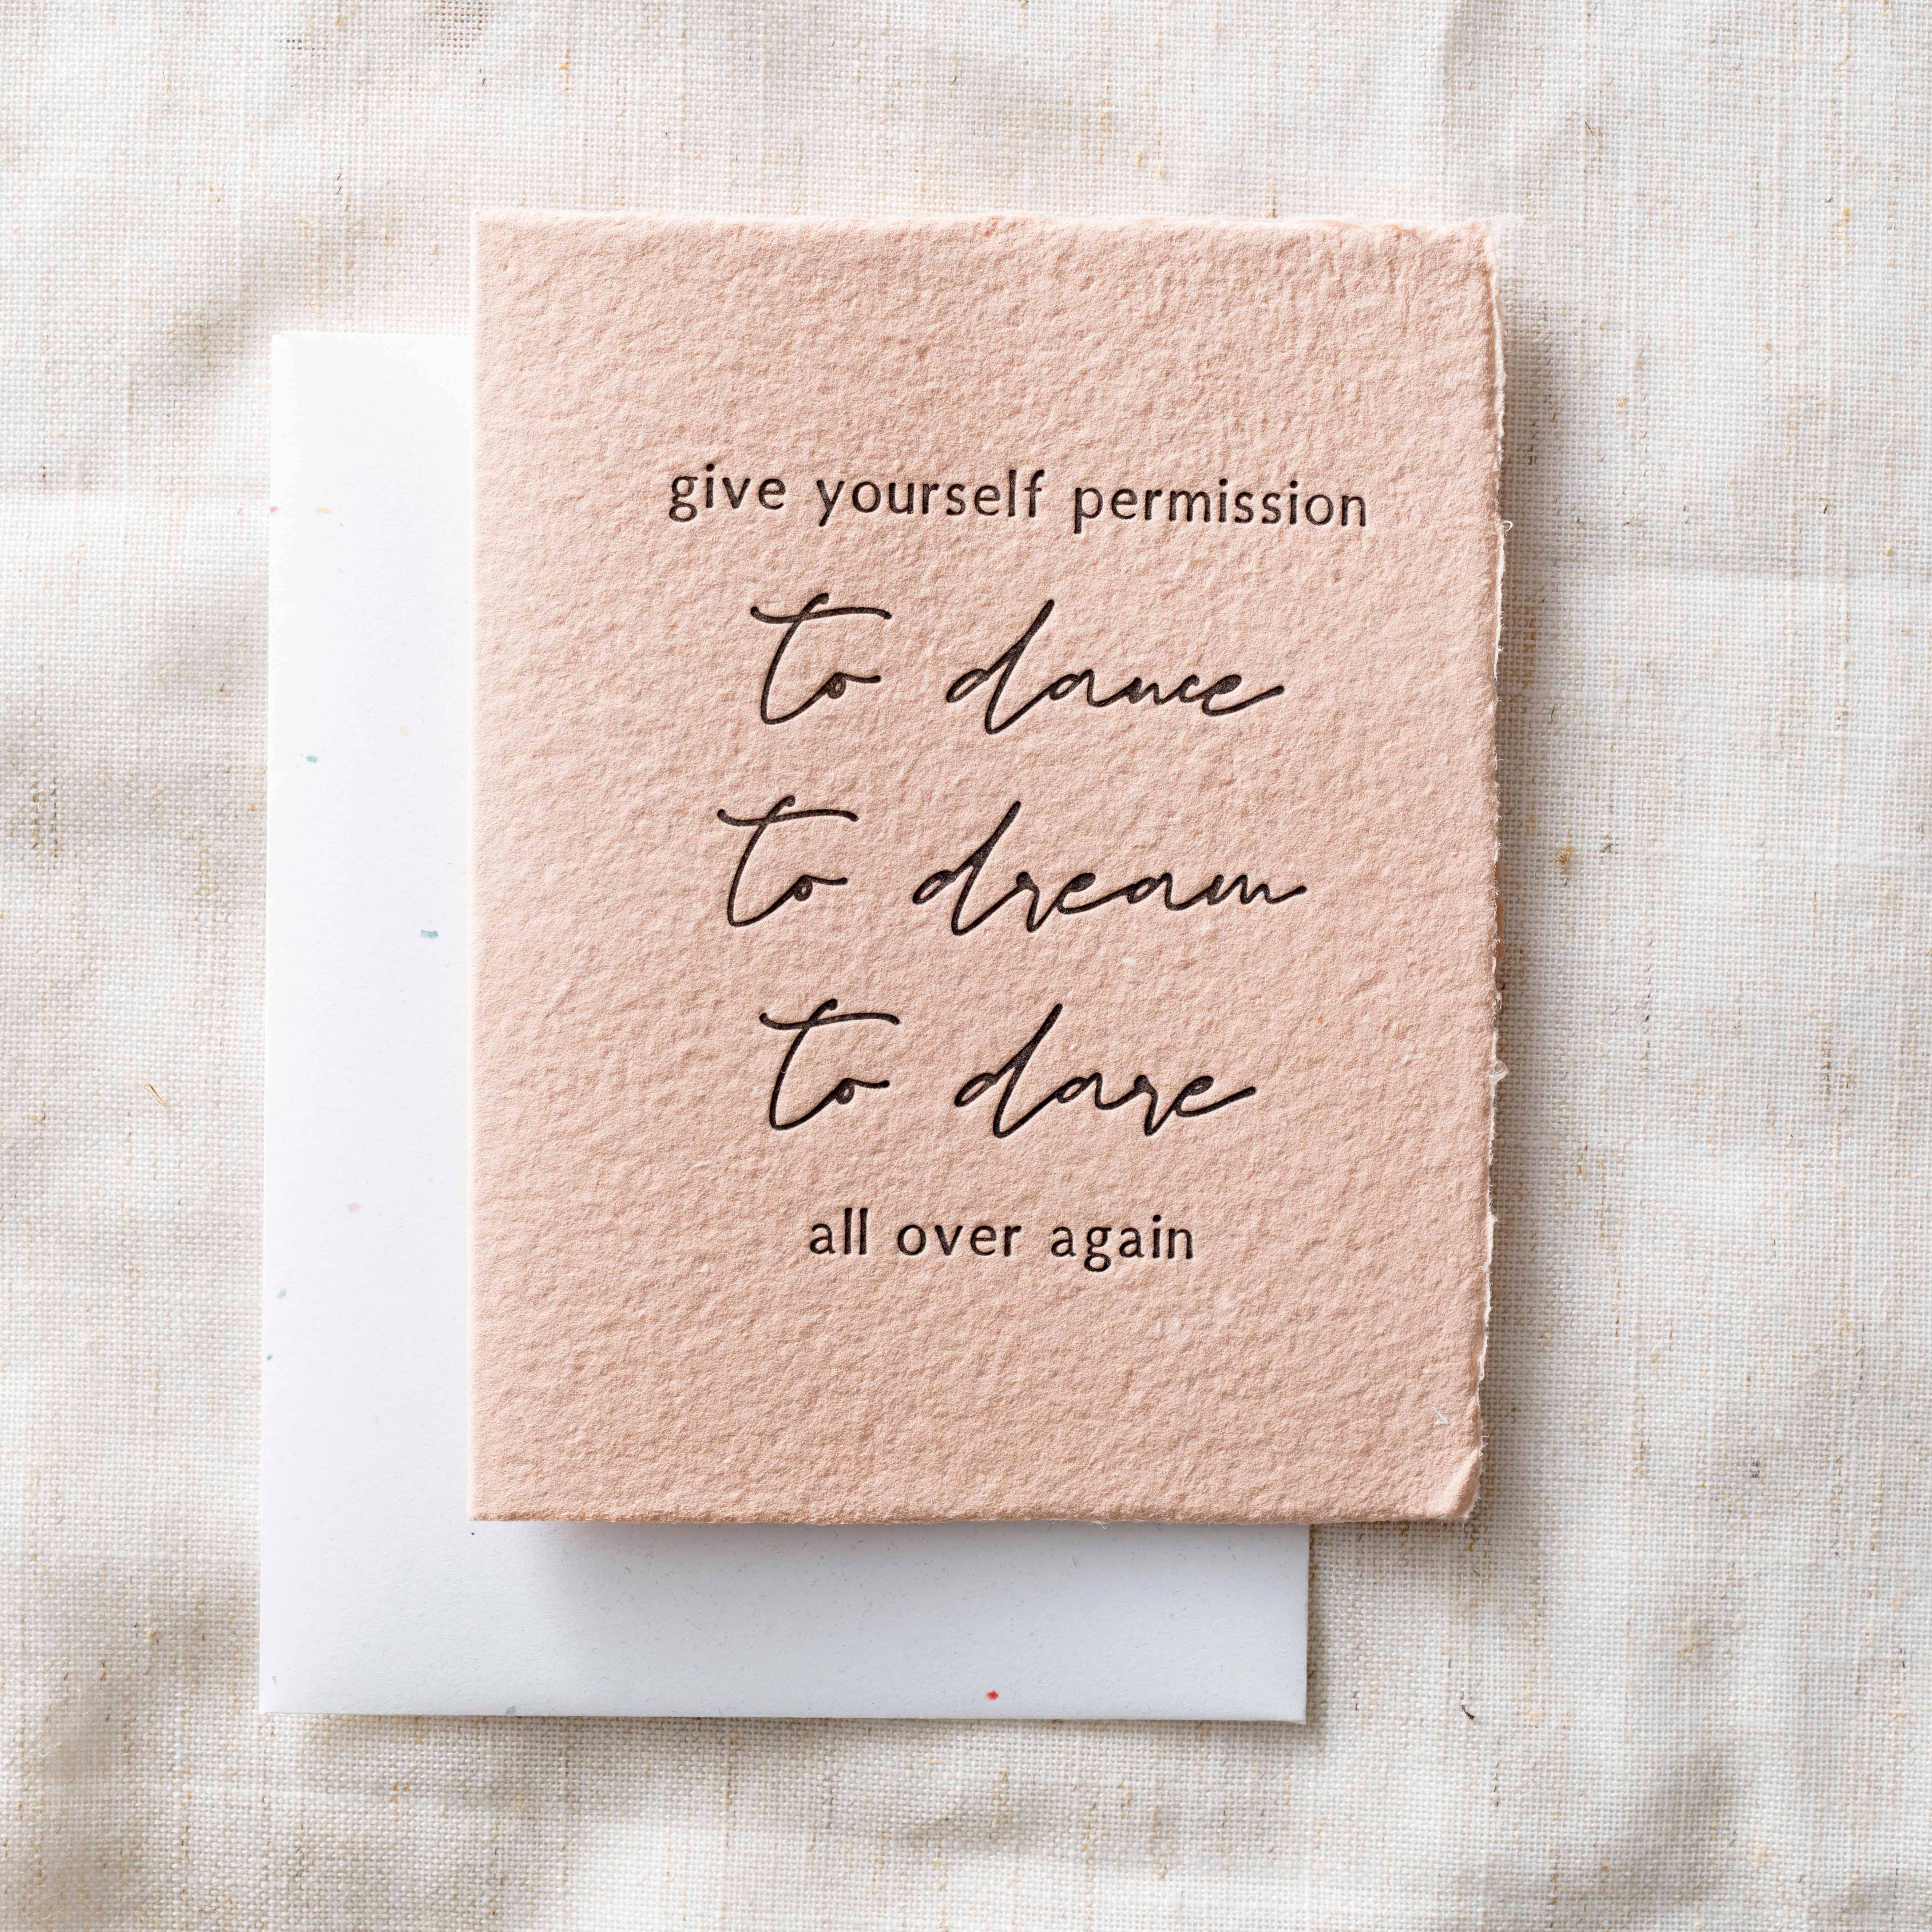 give yourself permission
to dance
to dream
to dare
all over again